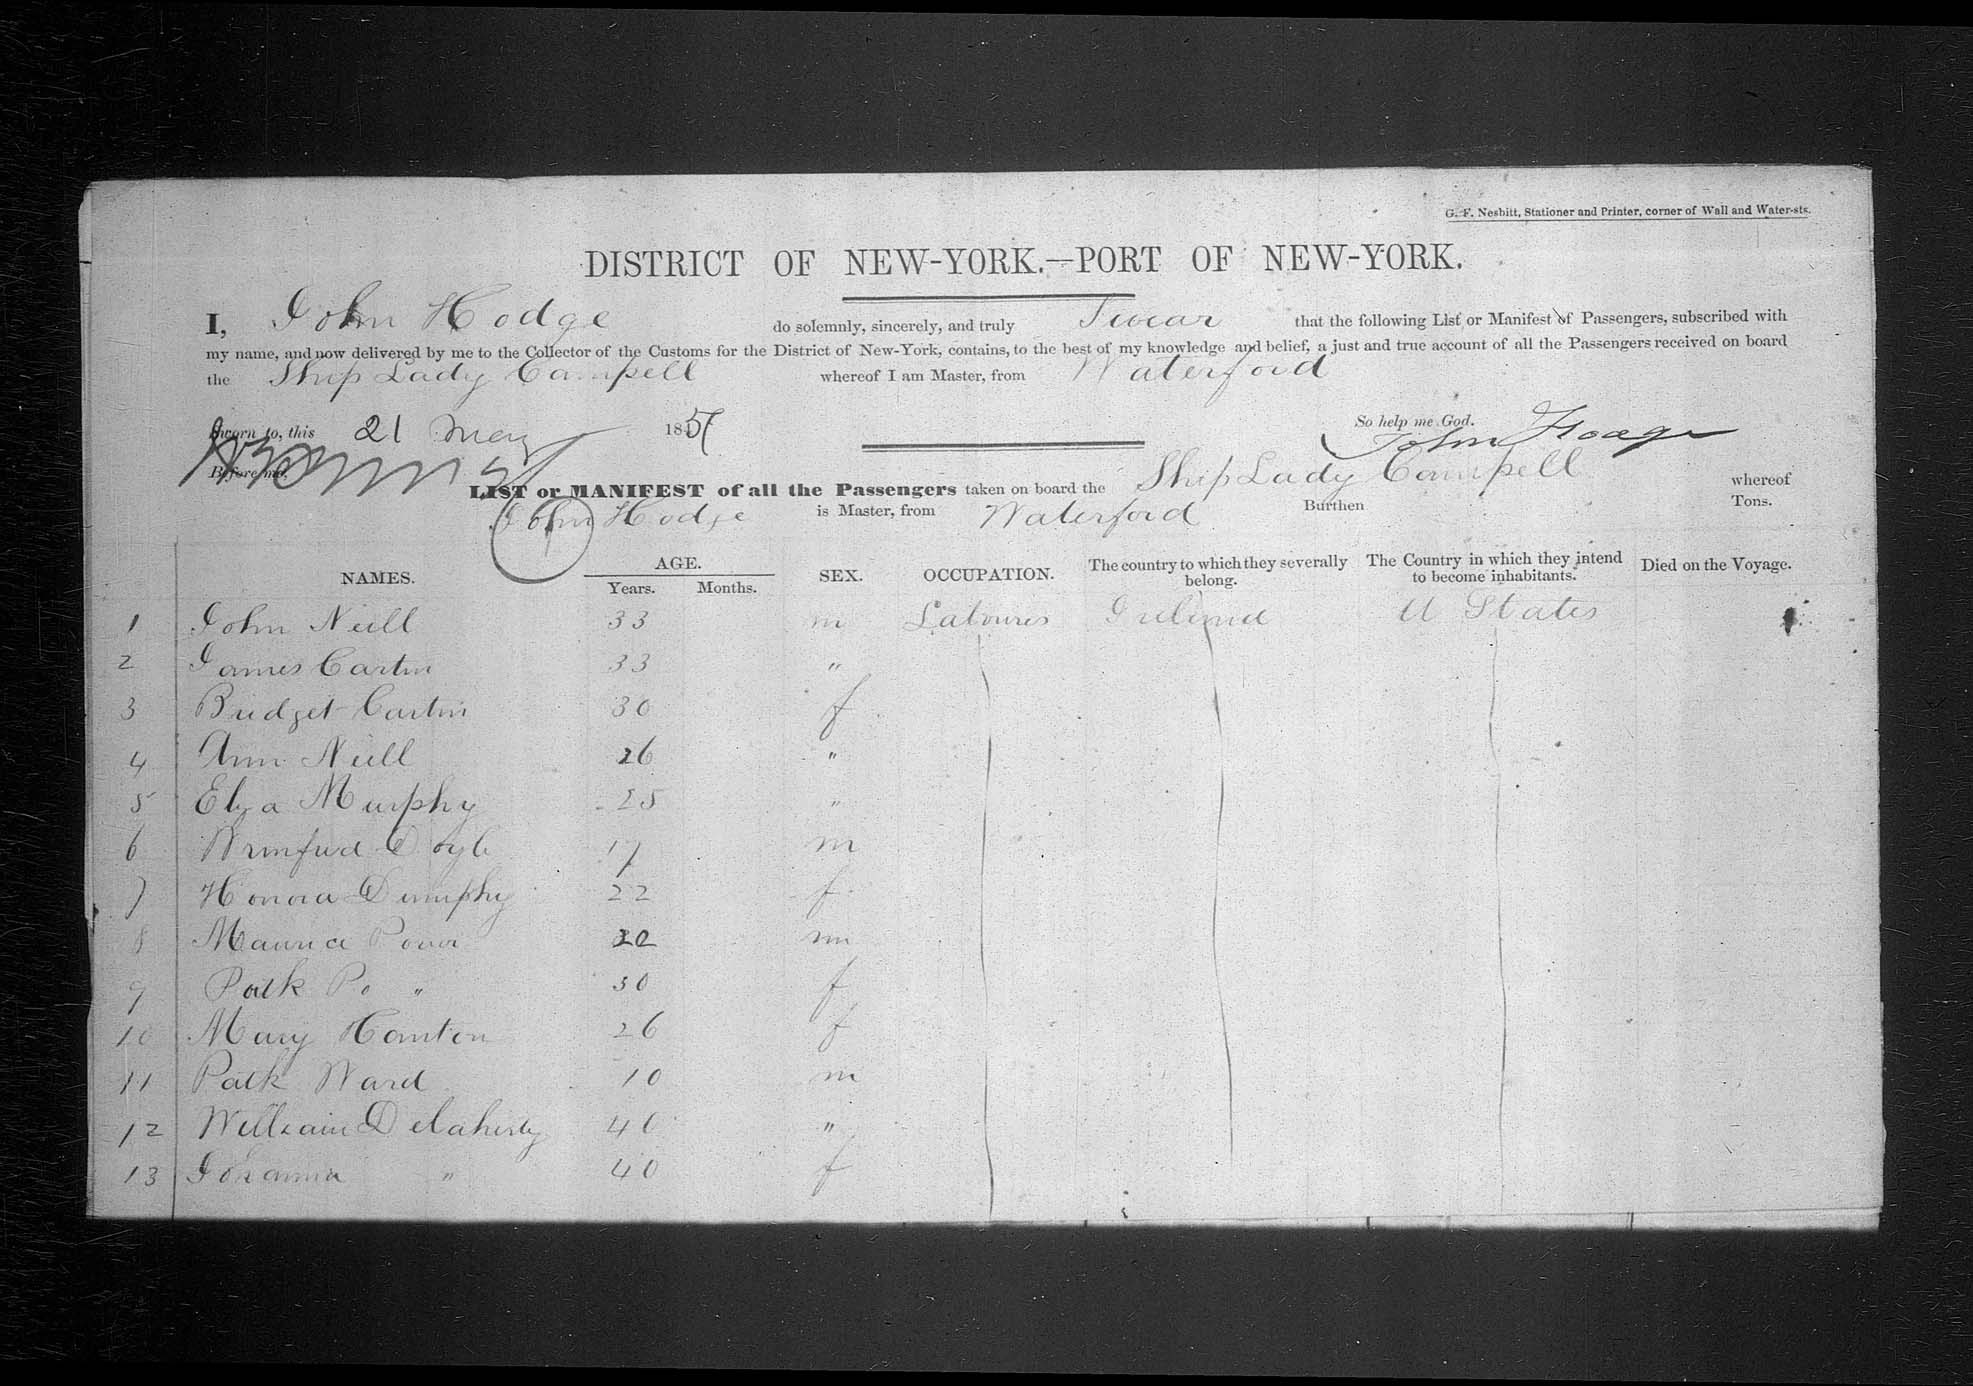 G. F. Nesbitt, Stationer and Printer, corner of Wall and Water-sts.
DISTRICT OF NEW-YORK.—PORT OF NEW-YORK.
I, John Hodge do solemnly, sincerely, and truly Swear that the following List or Manifest of Passengers, subscribed with
my name, and now delivered by me to the Collector of the Customs for the District of New-York, contains, to the best of my knowledge and belief, a just and true account of all the Passengers received on board
the Ship Lady Campell whereof I am Master, from Waterford
Sworn to, this 21 May 185 So help me God.
John Hodge
Before me.
LIST or MANIFEST of all the Passengers taken on board the Ship Lady Campell whereof
John Hodge is Master, from Waterford Burthen Tons.
NAMES. AGE. Years. Months. SEX. OCCUPATION. The country to which they severally belong. The Country in which they intend to become inhabitants. Died on the Voyage.
1 John Neill 33 m Laboures Ireland U States
2 James Carton 33 "
3 Bridget Carton 30 f
4 Ann Neill 26 "
5 Elza Murphy 25 "
6 Doyle 17 m
7 Honora Dunphy 22 f
8 Maurice Power m
9 Patk Po " 30 f
10 Mary Hanton 26 f
11 Patk Ward 10 m
12 William Delaherty 40 "
13 Johanna " 40 f